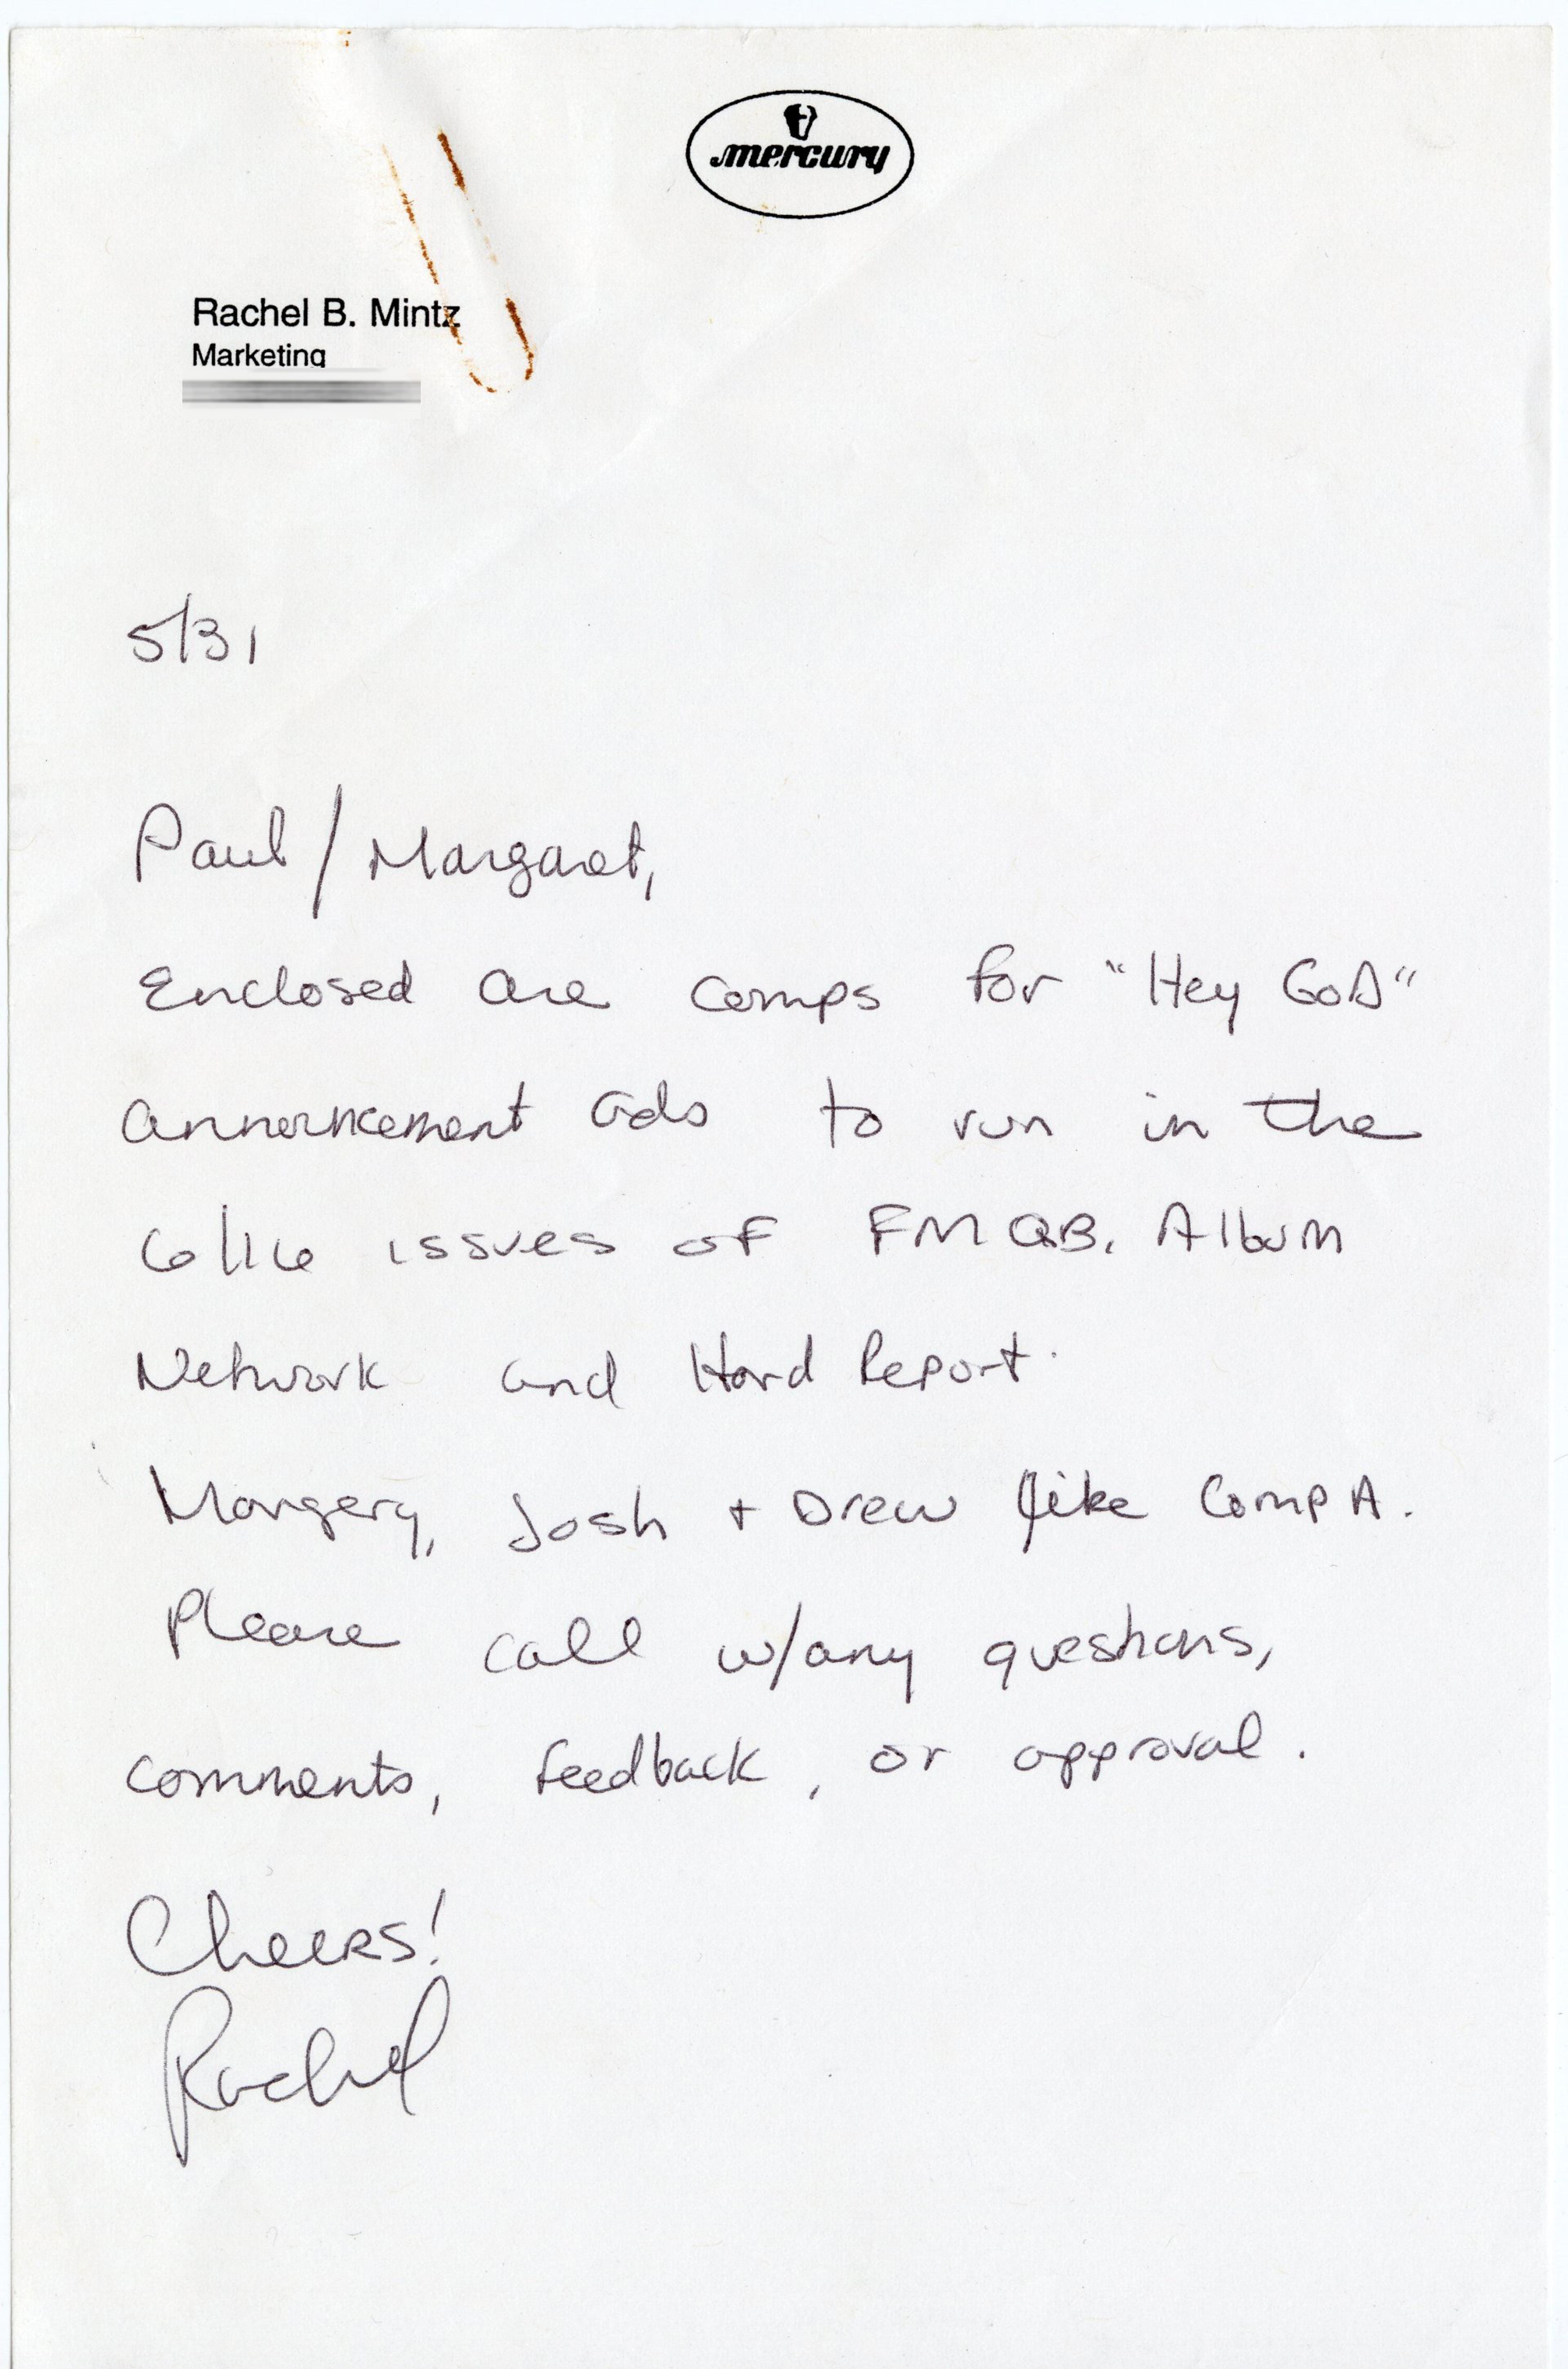 mercury
Rachel B. Mintz
Marketing
5/31
Paul / Margaret,
Enclosed are comps for "Hey GOD"
announcement ads to run in the
6/16 issues of FMQB, Album
Network and Hard Report.
Margery, Josh + Drew like Comp A.
Please call w/any questions,
comments, feedback, or approval.
Cheers!
Rachel